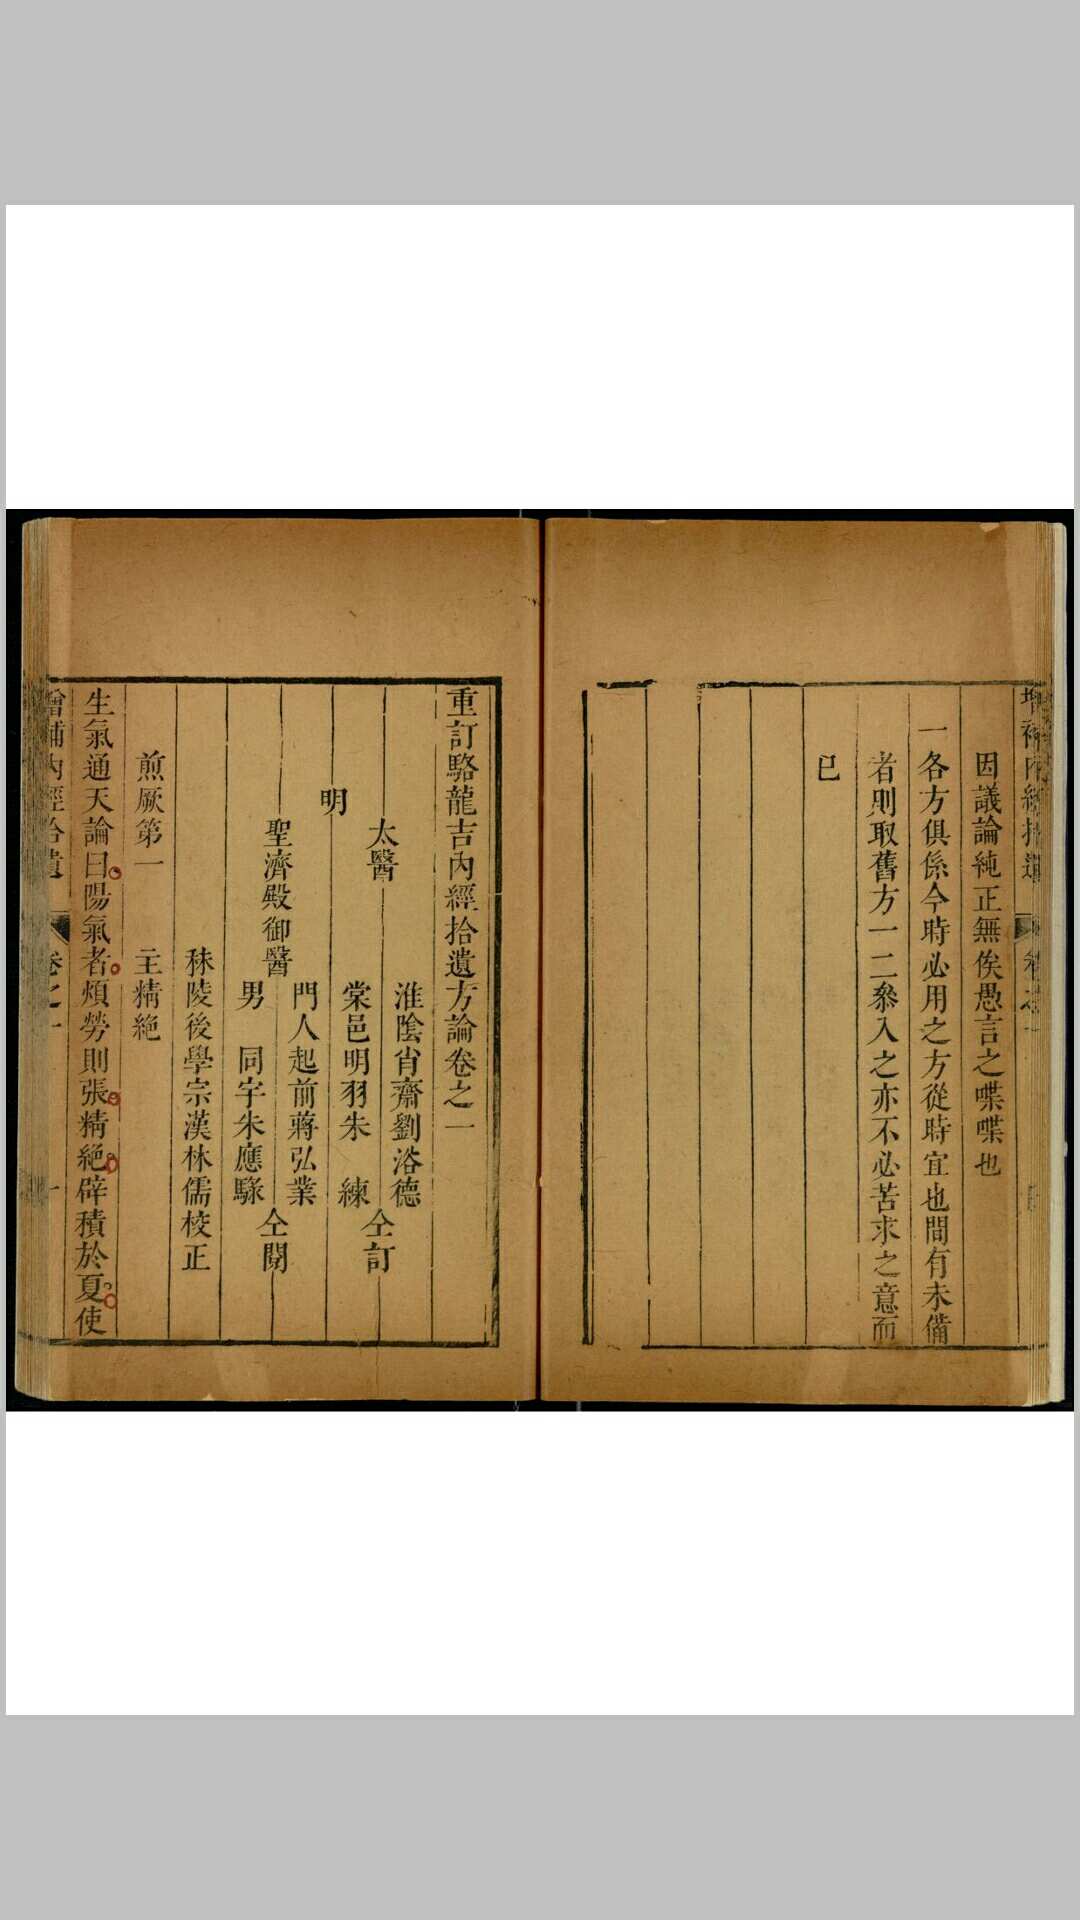 因議論純正無俟愚言之喋喋也
一各方俱係今時必用之方從時宜也間有未備
者則取舊方一二叅入之亦不必苦求之意而
已
重訂駱龍吉內經拾遺方論卷之一
淮陰肖齋劉浴德
太醫
棠邑明羽朱 練
仝訂
明
門人起前蔣弘業
聖濟殿御醫
男 同宇朱應騄
仝閱
秣陵後學宗漢林儒校正
煎厥第一 主精絕
生氣通天論曰陽氣者煩勞則張精絕辟積於夏使
增補內經拾遺 卷之一 一